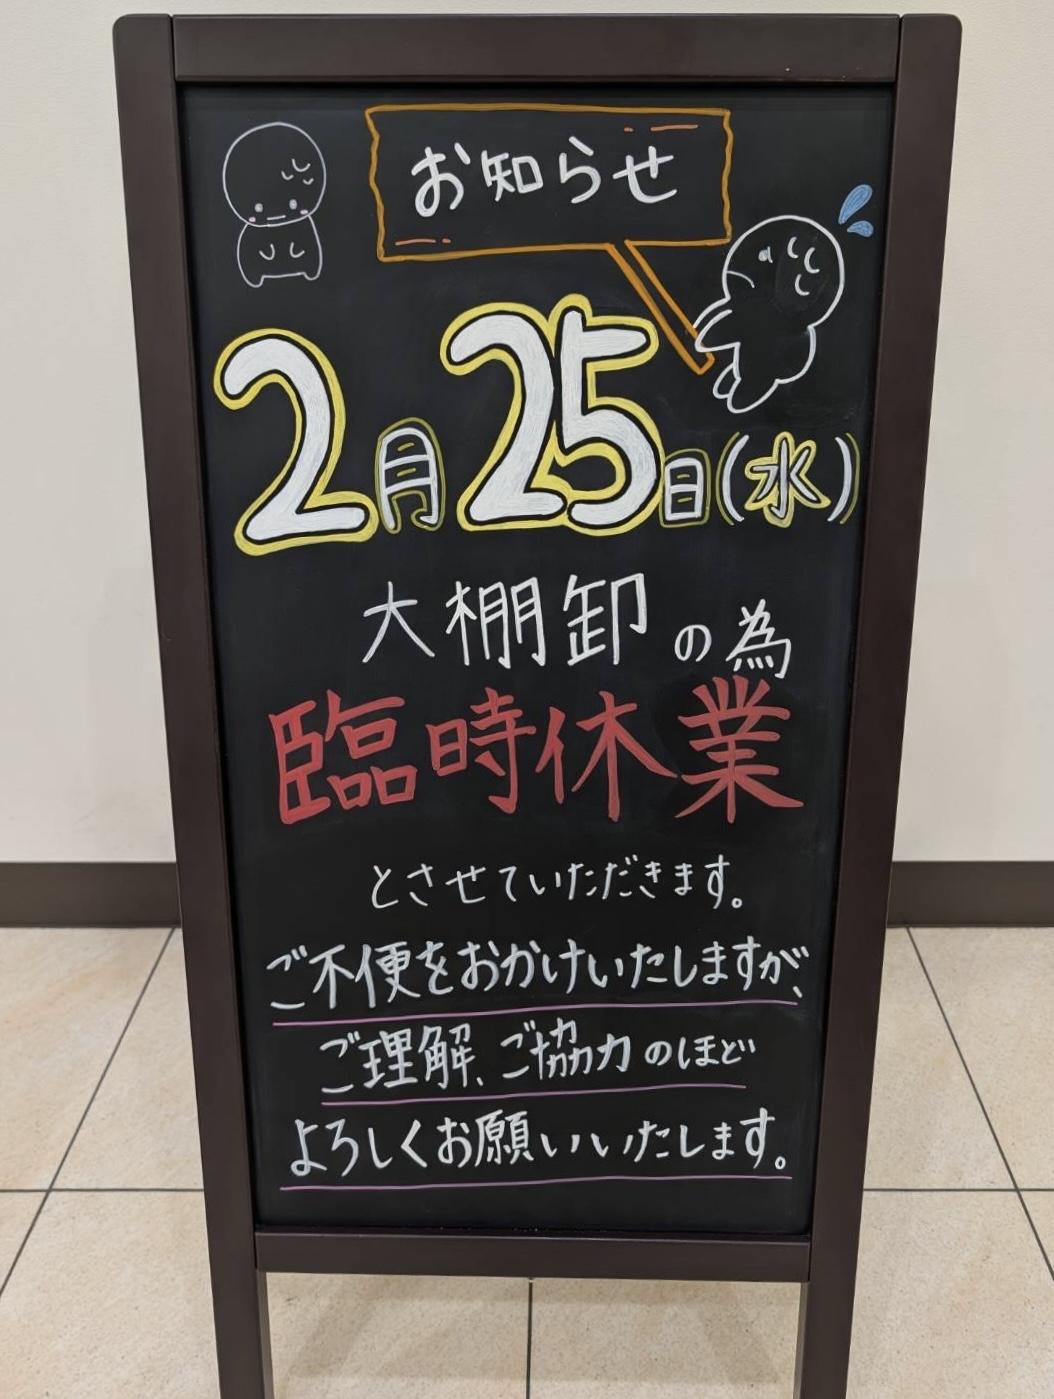 お知らせ
2月25日(水)
大棚卸の為
臨時休業
とさせていただきます。
ご不便をおかけいたしますが、
ご理解、ご協力のほど
よろしくお願いいたします。